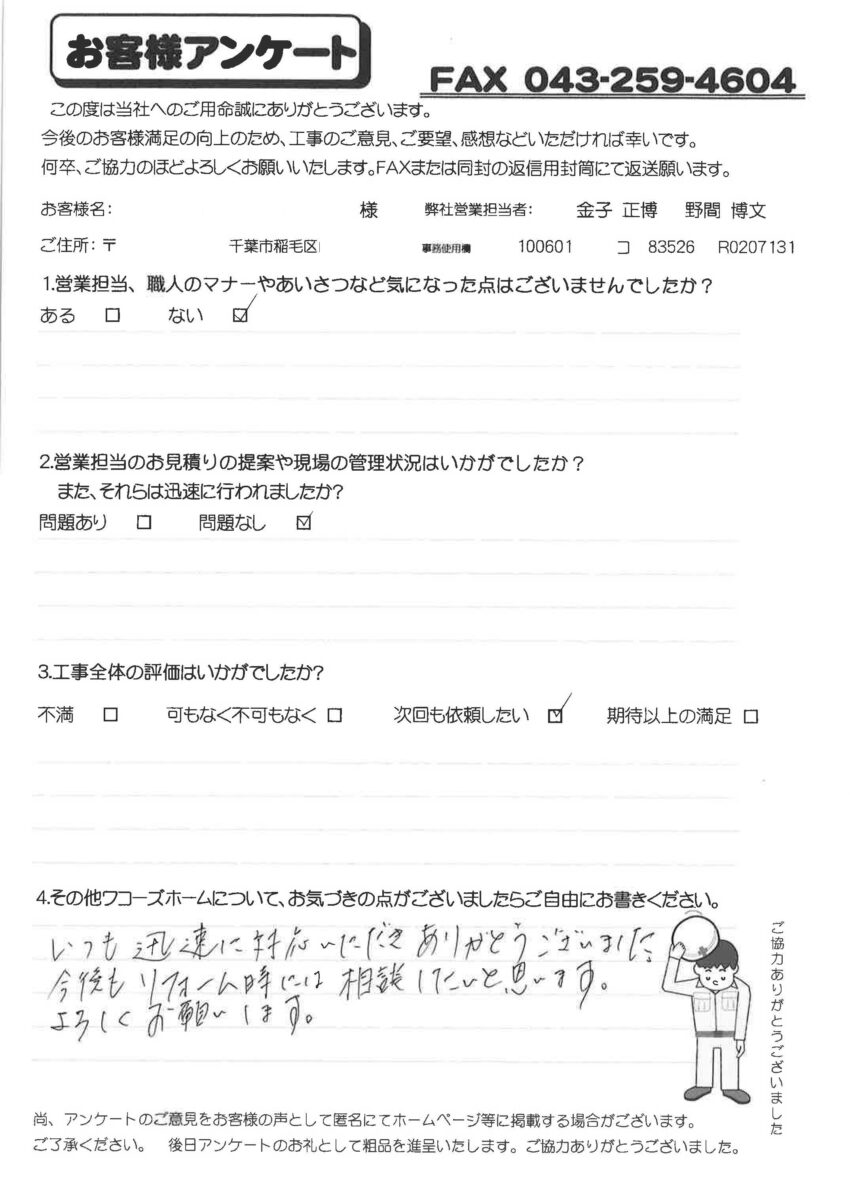 お客様アンケート
FAX 043-259-4604
この度は当社へのご用命誠にありがとうございます。
今後のお客様満足の向上のため、工事のご意見、ご要望、感想などいただければ幸いです。
何卒、ご協力のほどよろしくお願いいたします。FAXまたは同封の返信用封筒にて返送願います。
お客様名： 様 弊社営業担当者： 金子 正博 野間 博文
ご住所：〒 千葉市稲毛区 事務使用欄 100601 コ 83526 R0207131
1.営業担当、職人のマナーやあいさつなど気になった点はございませんでしたか？
ある □ ない ☑
2.営業担当のお見積りの提案や現場の管理状況はいかがでしたか？
また、それらは迅速に行われましたか?
問題あり □ 問題なし ☑
3.工事全体の評価はいかがでしたか?
不満 □ 可もなく不可もなく □ 次回も依頼したい ☑ 期待以上の満足 □
4.その他ワコーズホームについて、お気づきの点がございましたらご自由にお書きください。
いつも迅速に対応いただきありがとうございました。
今後もリフォーム時には相談したいと思います。
よろしくお願いします。
ご協力ありがとうございました
尚、アンケートのご意見をお客様の声として匿名にてホームページ等に掲載する場合がございます。
ご了承ください。 後日アンケートのお礼として粗品を進呈いたします。ご協力ありがとうございました。